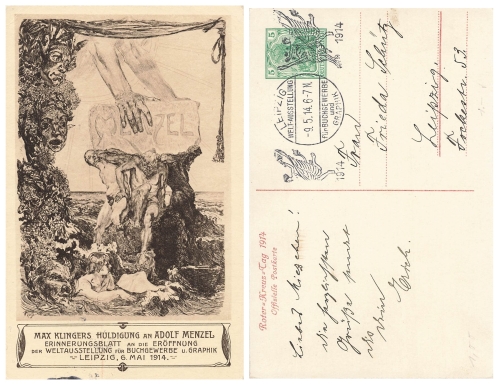 MENZEL
MAX KLINGERS HULDIGUNG AN ADOLF MENZEL
ERINNERUNGSBLATT AN DIE ERÖFFNUNG
DER WELTAUSSTELLUNG FÜR BUCHGEWERBE U. GRAPHIK
LEIPZIG, 6. MAI 1914.
5
5
1914
LEIPZIG
WELTAUSSTELLUNG
-9.5.14.6-7N.
FÜR BUCHGEWERBE
und
GRAPHIK
1914
Frau
Frieda Schütz
Leipzig.
53.
Rotes-Kreuz-Tag 1914
Offizielle Postkarte
Liebes
die herzlichsten
Grüße
Dein